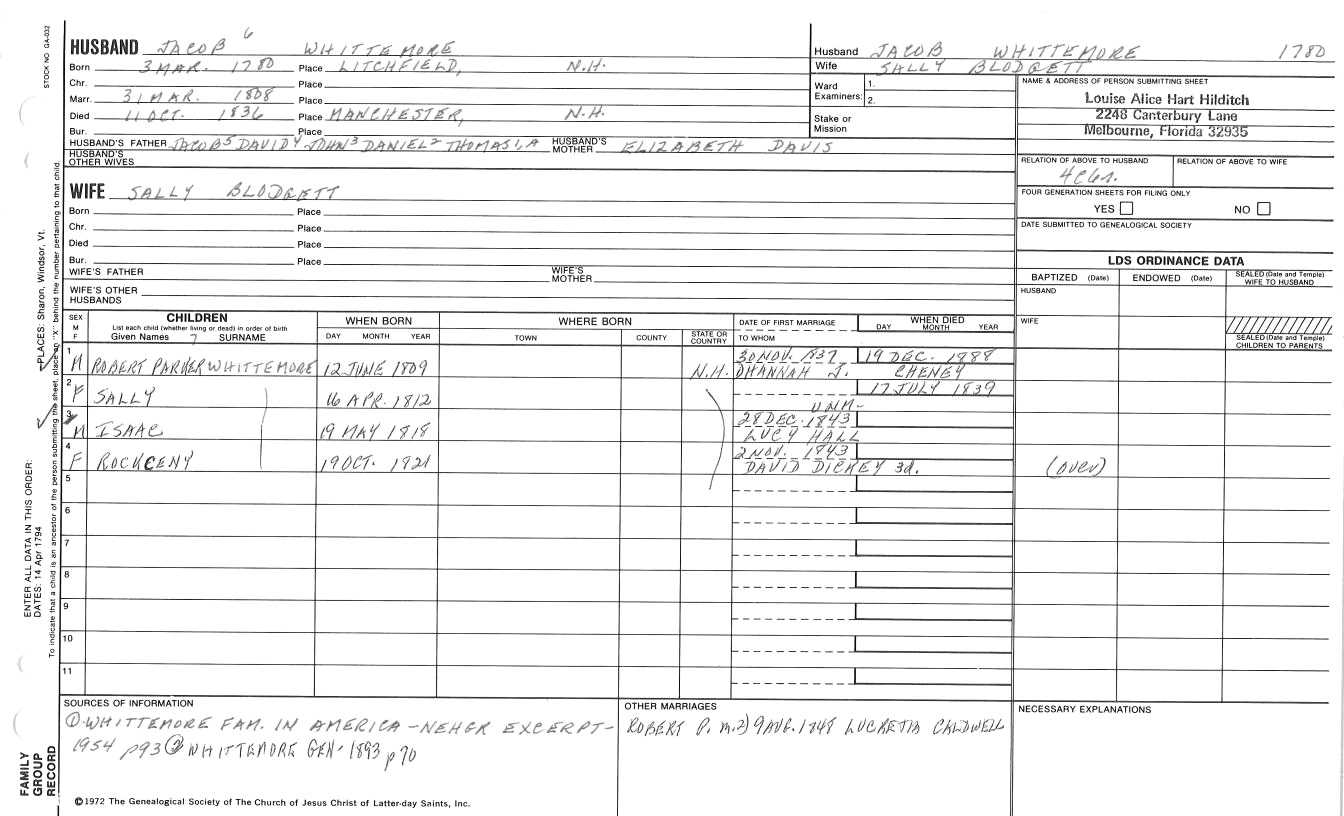 STOCK NO GA-032
HUSBAND JACOB 6 WHITTEMORE
Born 3 MAR. 1780 Place LITCHFIELD, N.H.
Chr. Place
Marr. 31 MAR. 1808 Place
Died 11 OCT. 1836 Place MANCHESTER, N.H.
Bur. Place
HUSBAND'S FATHER JACOB5 DAVID4 JOHN3 DANIEL2 THOMAS1,A HUSBAND'S MOTHER ELIZABETH DAVIS
HUSBAND'S OTHER WIVES
Husband JACOB WHITTEMORE 1780
Wife SALLY BLODGETT
Ward Examiners: 1. 2.
Stake or Mission
NAME & ADDRESS OF PERSON SUBMITTING SHEET
Louise Alice Hart Hilditch
2248 Canterbury Lane
Melbourne, Florida 32935
RELATION OF ABOVE TO HUSBAND RELATION OF ABOVE TO WIFE
FOUR GENERATION SHEETS FOR FILING ONLY
YES NO
DATE SUBMITTED TO GENEALOGICAL SOCIETY
WIFE SALLY BLODGETT
Born Place
Chr. Place
Died Place
Bur. Place
WIFE'S FATHER WIFE'S MOTHER
WIFE'S OTHER HUSBANDS
LDS ORDINANCE DATA
BAPTIZED (Date) ENDOWED (Date) SEALED (Date and Temple) WIFE TO HUSBAND
HUSBAND
WIFE
SEALED (Date and Temple) CHILDREN TO PARENTS
SEX M F
CHILDREN
List each child (whether living or dead) in order of birth
Given Names 7 SURNAME
WHEN BORN
DAY MONTH YEAR
WHERE BORN
TOWN COUNTY STATE OR COUNTRY
DATE OF FIRST MARRIAGE
TO WHOM
WHEN DIED
DAY MONTH YEAR
1 M ROBERT PARKER WHITTEMORE 12 JUNE 1809 N.H. 30 NOV. 1837 19 DEC. 1888
HANNAH J. CHENEY
2 F SALLY 16 APR. 1812 17 JULY 1839
UNM-
3 M ISAAC 19 MAY 1818 28 DEC. 1843
LUCY HALL
4 F ROCKCENY 19 OCT. 1821 2 NOV. 1843
DAVID DICKEY 3d. (over)
5
6
7
8
9
10
11
SOURCES OF INFORMATION
① WHITTEMORE FAM. IN AMERICA - NEHGR EXCERPT-
1954 p93 ② WHITTEMORE GEN. 1893 p 70
OTHER MARRIAGES
ROBERT P. m.2) 9 AUG. 1848 LUCRETIA CALDWELL
NECESSARY EXPLANATIONS
©1972 The Genealogical Society of The Church of Jesus Christ of Latter-day Saints, Inc.
FAMILY GROUP RECORD
ENTER ALL DATA IN THIS ORDER:
DATES: 14 Apr 1794
PLACES: Sharon, Windsor, Vt.
To indicate that a child is an ancestor of the person submitting the sheet, place an "X" behind the number pertaining to that child.